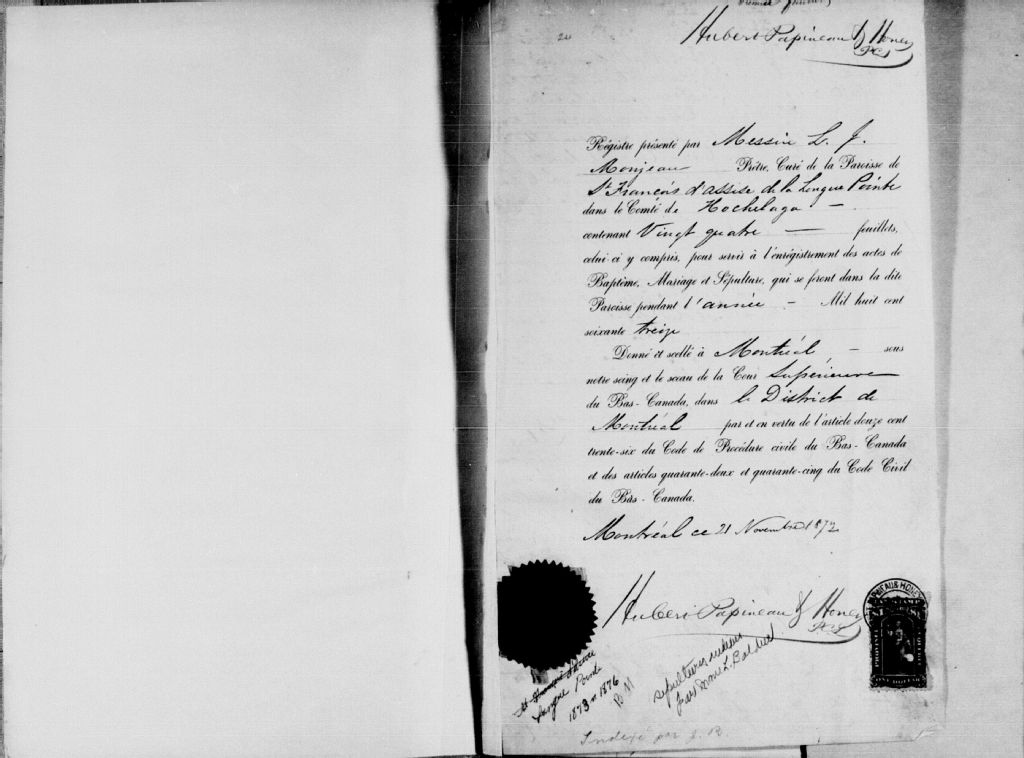 Hubert Papineau & Honey
PCS
Régistre présenté par Messire L. J.
Monjeau Prêtre, Curé de la Paroisse de
St François d'assise de la Longue Pointe
dans le Comté de Hochelaga —
contenant Vingt quatre — feuillets,
celui-ci y compris, pour servir à l'enrégistrement des actes de
Baptême, Mariage et Sépulture, qui se feront dans la dite
Paroisse pendant l'année — Mil huit cent
soixante treize
Donné et scellé à Montréal — sous
notre seing et le sceau de la Cour Supérieure
du Bas-Canada, dans le District de
Montréal par et en vertu de l'article douze cent
trente-six du Code de Procédure civile du Bas-Canada
et des articles quarante-deux et quarante-cinq du Code Civil
du Bas-Canada.
Montréal ce 21 Novembre 1872
Hubert Papineau & Honey
PCS
PAPINEAU & HONEY
ONE DOLLAR
St François d'assise
Longue Pointe
1873 à 1876
B M
sépultures
par L. Bolduc
Indexé par J. R.